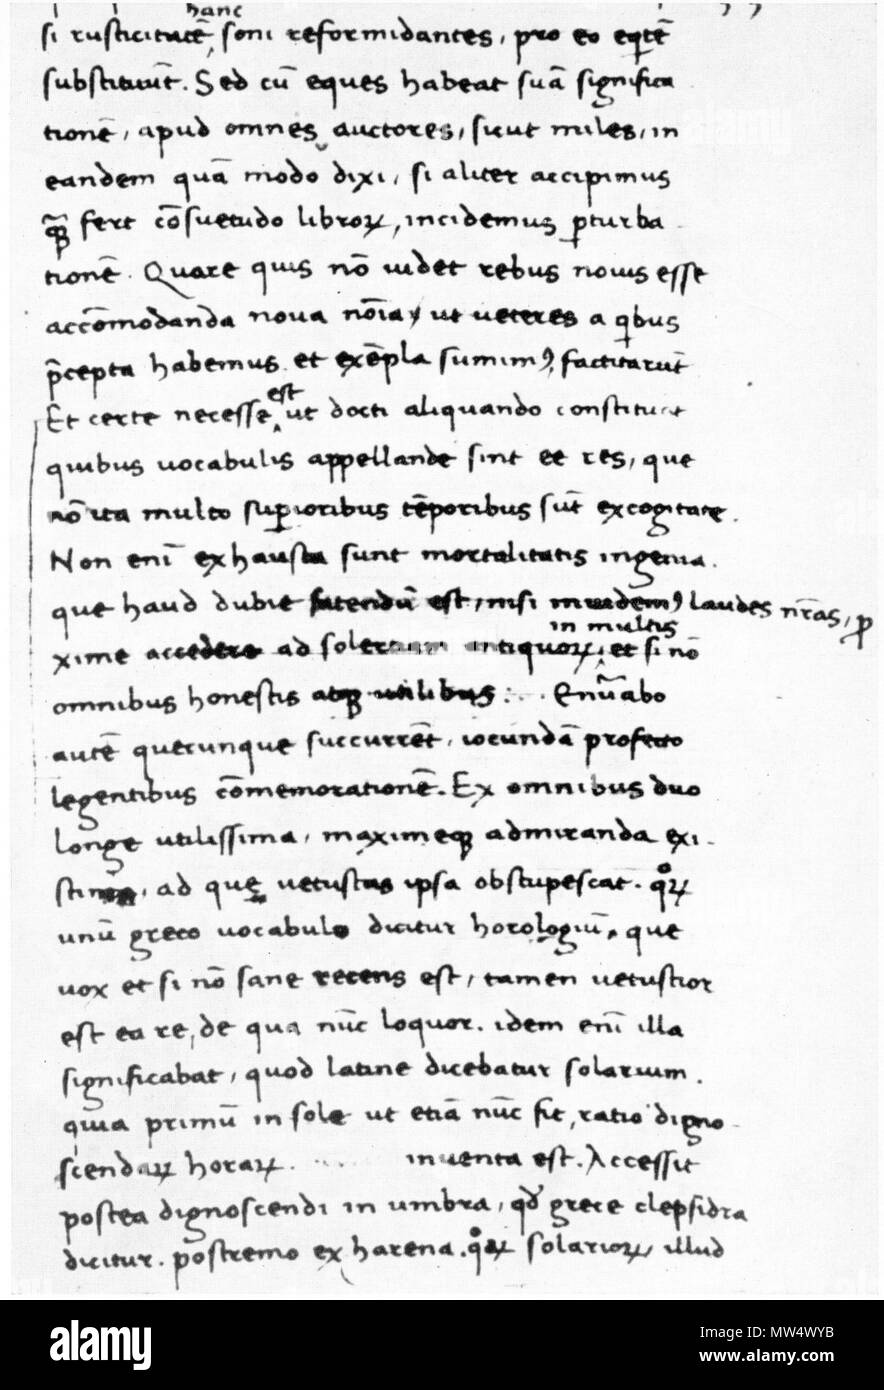 hanc
si rusticitatē, soni reformidantes, pro eo eqtē
substituūt. Sed cū eques habeat suā significa
tionē, apud omnes auctores, sicut miles, in
eandem quā modo dixi, si aliter accipimus
q̃ꝫ fert cōsuetudo libroꝝ, incidemus ꝑturba
tionē. Quare quis nō uidet rebus nouis esse
accōmodanda noua nōia, ut ueteres a qbus
p̄cepta habemus et exēpla sumimꝰ, factitarūt
est
Et certe necesse ut docti aliquando constituāt
quibus uocabulis appellande sint ee res, que
nō ita multo suꝑioribus tēporibus sūt excogitate.
Non enī exhausta sunt mortalitatis ingenia.
que haud dubie fatendū est, nisi inuidemꝰ laudes nr̄as, ꝓ
in multis
xime accedere ad solertiam antiquoꝝ, et si nō
omnibus honestis atqꝫ utilibus. Enū̄abo
autē quecunque succurrēt, iocundā profecto
legentibus cōmemorationē. Ex omnibus duo
longe utilissima, maximeqꝫ admiranda exi
stimo, ad que uetustas ipsa obstupescat. qͦꝝ
unū greco uocabulo dicitur horologiū, que
uox et si nō sane recens est, tamen uetustior
est ea re, de qua nūc loquor. idem enī illa
significabat, quod latine dicebatur solarium.
quia primū in sole ut etiā nūc fit, ratio digno
scendaꝝ horaꝝ inuenta est. Accessit
postea dignoscendi in umbra, qđ grece clepsidra
dicitur. postremo ex harena. qͦꝝ solarioꝝ, illud
alamy
Image ID: MW4WYB
www.alamy.com